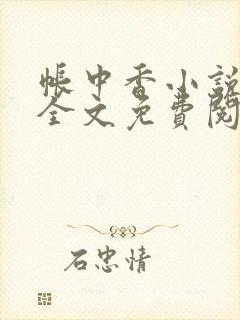 帳中香小說
全文免費閱
石忠情